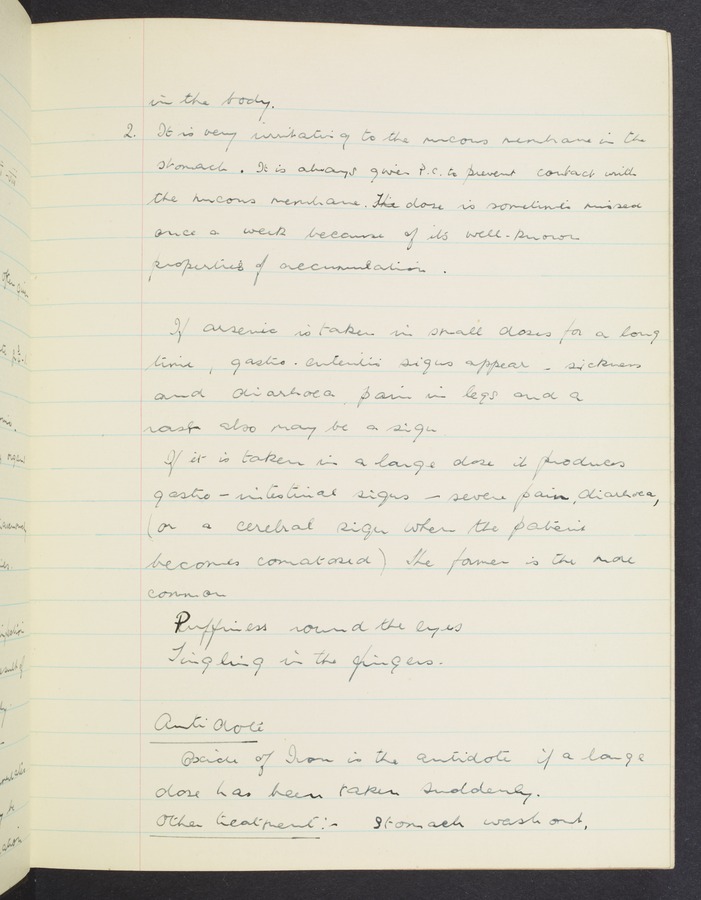 in the body.
2. It is very irritating to the mucous membrane in the
stomach. It is always given P.C. to prevent contact with
the mucous membrane. The dose is sometimes missed
once a week because of its well-known
properties of accumulation.
If arsenic is taken in small doses for a long
time, gastro-enteritis signs appear - sickness
and diarhoea, pain in legs and a
rash also may be a sign
If it is taken in a large dose it produces
gastro-intestinal signs - severe pain, diarhoea,
(or a cerebral sign when the patient
becomes comatosed) The former is the more
common
Puffiness round the eyes
Tingling in the fingers.
Antidote
Oxide of Iron is the antidote if a large
dose has been taken suddenly.
Other treatment:- Stomach wash out,